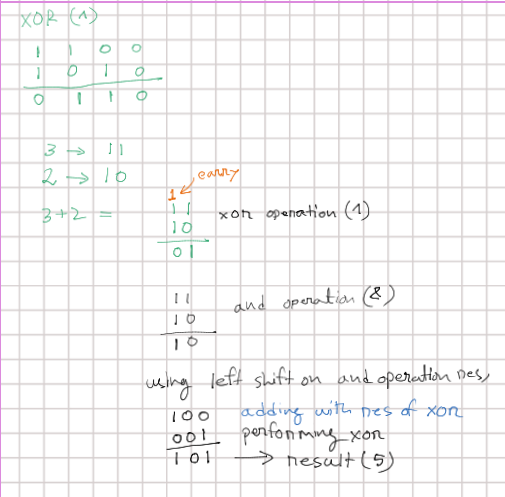 XOR (^)
1 1 0 0
1 0 1 0
0 1 1 0
3 → 11
2 → 10
carry
1
3+2 = 11 xor operation (^)
10
01
11 and operation (&)
10
10
using left shift on and operation res,
100 adding with res of xor
001 performing xor
101 → result (5)